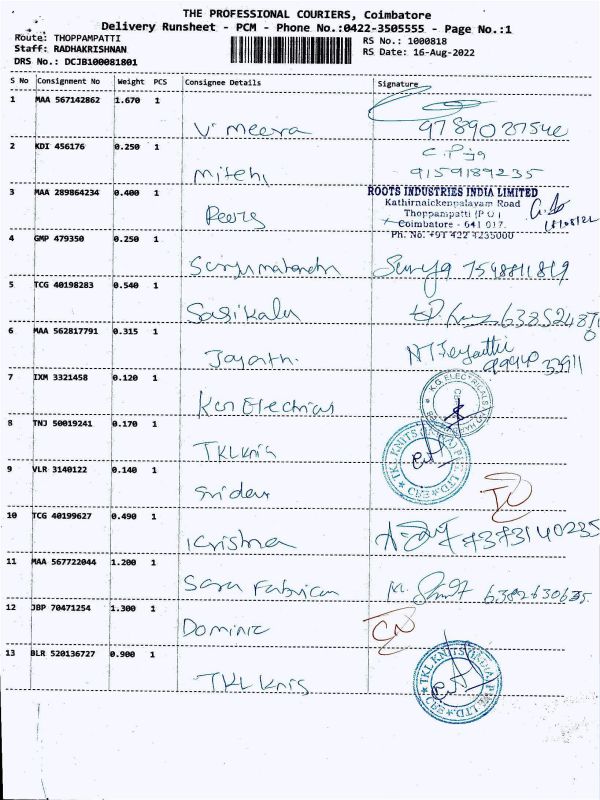 THE PROFESSIONAL COURIERS, Coimbatore
Delivery Runsheet - PCM - Phone No.:0422-3505555 - Page No.:1
Route: THOPPAMPATTI
RS No.: 1000818
Staff: RADHAKRISHNAN
RS Date: 16-Aug-2022
DRS No.: DCJB100081801
S No Consignment No Weight PCS Consignee Details Signature
1 MAA 567142862 1.670 1
V meera 9789087540
2 KDI 456176 0.250 1
Mitehi 9159189235
3 MAA 289864234 0.400 1
Peers
ROOTS INDUSTRIES INDIA LIMITED
Kathirnaickenpalayam Road
Thoppampatti (P O)
Coimbatore - 641 017.
Ph. No: +91 422 4235000
4 GMP 479350 0.250 1
Surya 7548811819
5 TCG 40198283 0.540 1
Sasikala
6 MAA 562817791 0.315 1
Jayanthi 99940 33911
7 IXM 3321458 0.120 1
Electrical
8 TNJ 50019241 0.170 1
TKL Knits
TKL KNITS (INDIA) PVT. LTD. CBE
9 VLR 3140122 0.140 1
Sridevi
10 TCG 40199627 0.490 1
Krishna 7373140235
11 MAA 567722044 1.200 1
Sara Fabrican 6382630635
12 JBP 70471254 1.300 1
Dominic CN
13 BLR 520136727 0.900 1
TKL Knits
TKL KNITS (INDIA) PVT. LTD. CBE